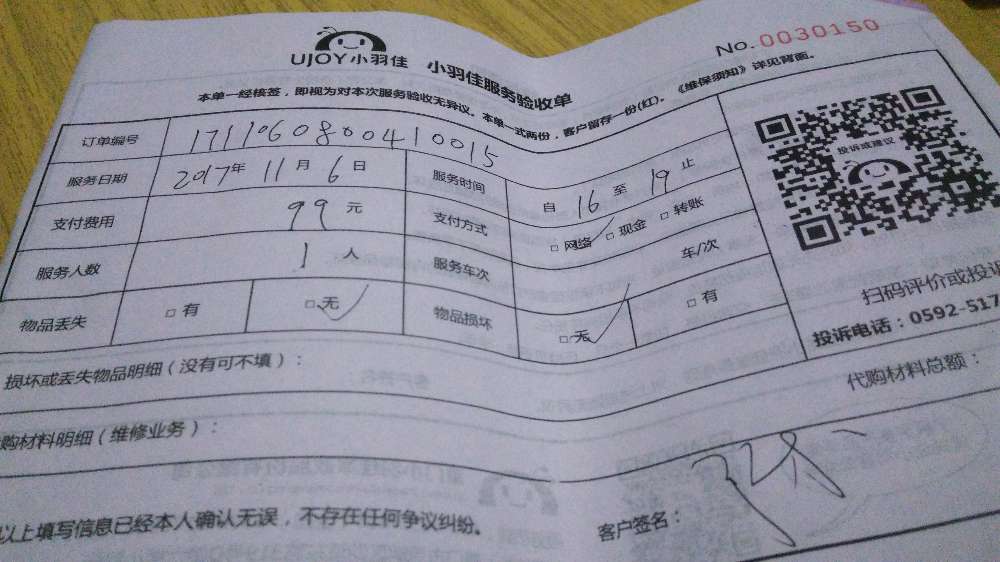 UJOY小羽佳 小羽佳服务验收单
No.0030150
本单一经核签，即视为对本次服务验收无异议。本单一式两份，客户留存一份(红)。《维保须知》详见背面。
订单编号 1711060800410015
服务日期 2017年 11月 6日 服务时间 自 16 至 19 止
支付费用 99元 支付方式 □网络 □现金 □转账
服务人数 1人 服务车次 车/次
物品丢失 □有 □无 物品损坏 □无 □有
投诉或建议
扫码评价或投诉
投诉电话：0592-517
损坏或丢失物品明细（没有可不填）：
代购材料总额：
购材料明细（维修业务）：
以上填写信息已经本人确认无误，不存在任何争议纠纷。
客户签名：